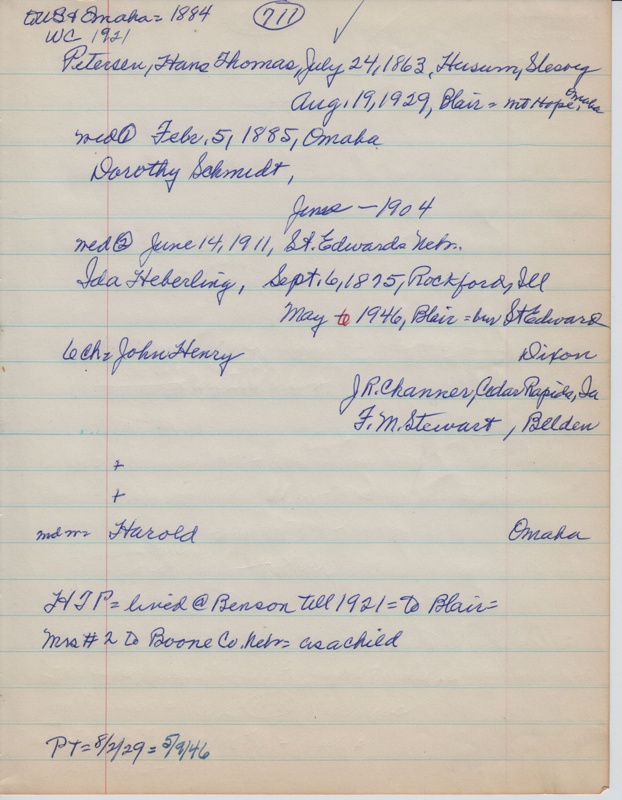 to US & Omaha = 1884
711
WC 1921
Petersen, Hans Thomas, July 24, 1863, Husum, Slesvig
Aug. 19, 1929, Blair = Mt Hope, Omaha
med ① Febr. 5, 1885, Omaha
Dorothy Schmidt,
June - 1904
med ② June 14, 1911, St. Edwards Nebr.
Ida Heberling, Sept. 6, 1875, Rockford, Ill
May 6 1946, Blair = bur St Edward
6 ch = John Henry Dixon
J R. Channer, Cedar Rapids, Ia
F. M. Stewart, Belden
+
+
md m = Harold Omaha
HTP = lived @ Benson till 1921 = to Blair =
Mrs # 2 to Boone Co. Nebr = as a child
PT = 8/2/29 = 5/9/46